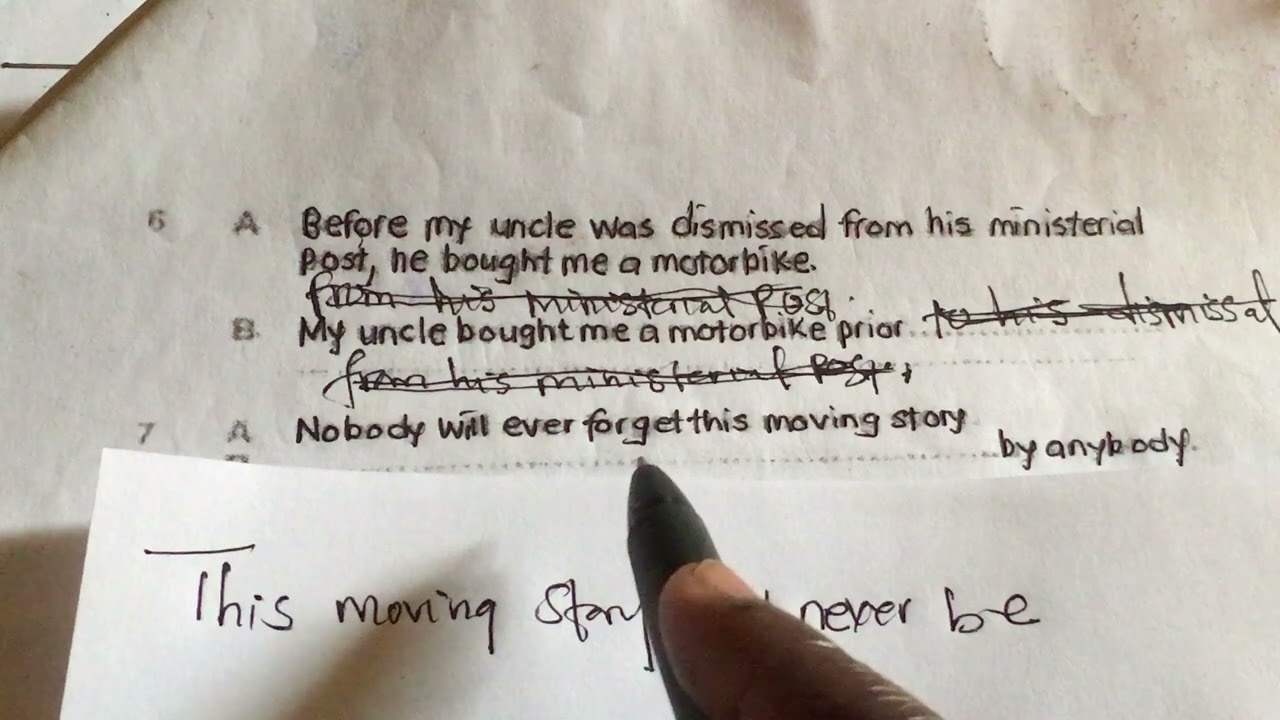 6 A Before my uncle was dismissed from his ministerial
post, he bought me a motorbike.
from his ministerial Post.
B. My uncle bought me a motorbike prior to his dismissal
from his ministerial Post.
7 A Nobody will ever forget this moving story
by anybody.
This moving story never be